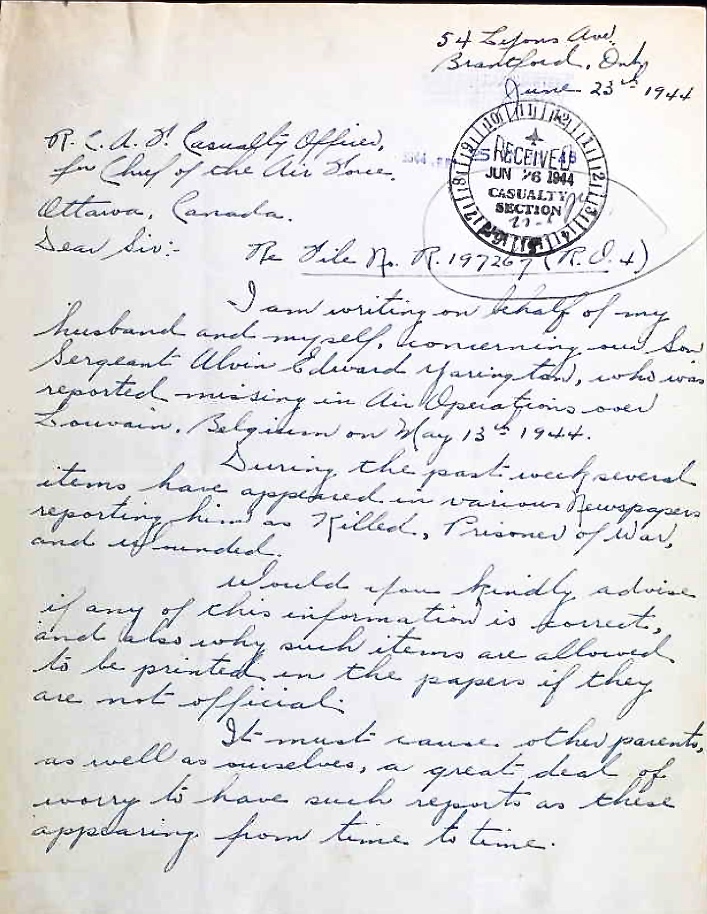 54 Lyons Ave.
Brantford, Ont.
June 23rd 1944
R.C.A.F. Casualty Officer,
for Chief of the Air Force.
Ottawa, Canada.
RECEIVED
JUN 26 1944
CASUALTY
SECTION
Dear Sir:- Re File No. R.197267 (R.O.4)
I am writing on behalf of my
husband and myself, concerning our Son
Sergeant Alvin Edward Yarington, who was
reported missing in Air Operations over
Louvain, Belgium on May 13th 1944.
During the past week several
items have appeared in various Newspapers
reporting him as Killed, Prisoner of War,
and wounded.
Would you kindly advise
if any of this information is correct,
and also why such items are allowed
to be printed in the papers if they
are not official.
It must cause other parents,
as well as ourselves, a great deal of
worry to have such reports as these
appearing from time to time.